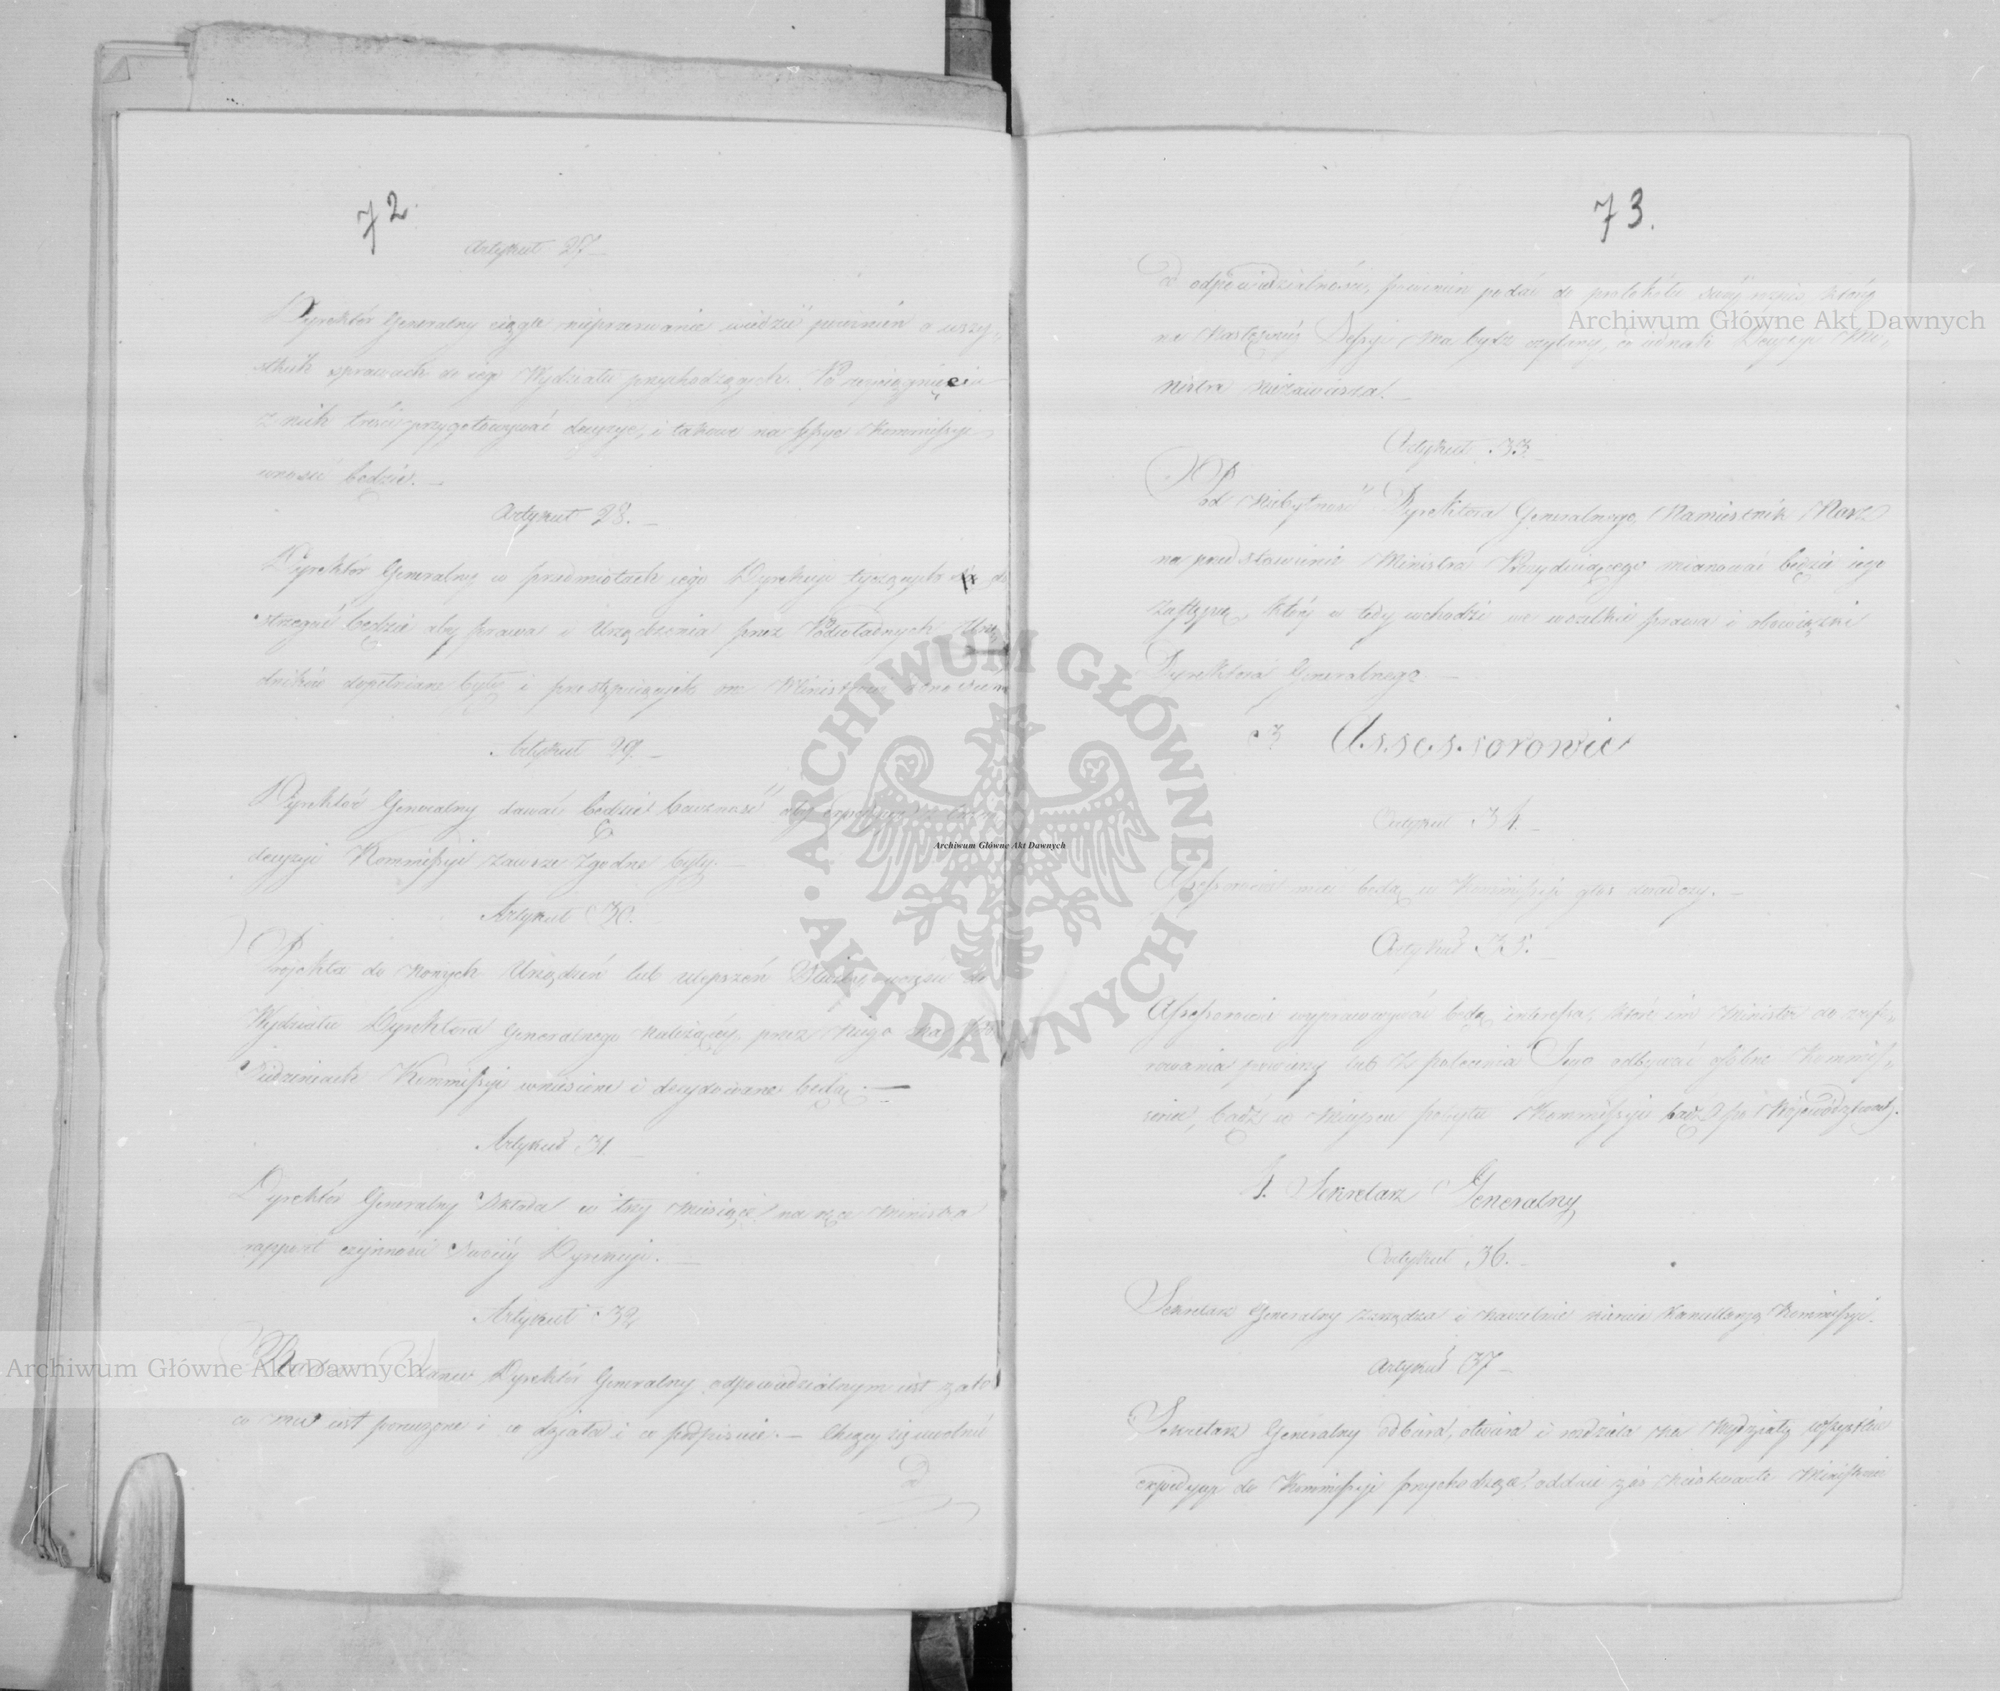 72.
Artykuł 27.
Dyrektór Generalny ciągle nieprzerwanie wiedzić powinien o wszy-
stkich sprawach do iego Wydziału przychodzących. Po wyciągnięciu
z nich treści przygotowywać decyzye, i takowe na sessye Kommissyi
wnosić będzie. —
Artykuł 28. —
Dyrektór Generalny w przedmiotach iego Dyrekcyi tyczących się
strzegać będzie aby prawa i Urządzenia przez Podwładnych Urzę
dników dopełniane były i przestępuiących
Artykuł 29. —
Dyrektór Generalny dawać będzie baczność aby
decyzyi Kommissyi zawsze zgodne były.
Artykuł 30.
Projekta do nowych Urządzeń lub ulepszeń do
Wydziału Dyrektora Generalnego należącéy, przez niego na Po
siedzeniach Kommissyi wniesione i decydowane będą. —
Artykuł 31. —
Dyrektór Generalny składa w trzy miesiące na ręce Ministra
rapport czynności swoiéy Dyrekcyi. —
Artykuł 32
Dyrektór Generalny odpowiedzialnym iest za to
co mu iest poruczone i co działa i co podpisuie. — Chcący się uwolnić
73.
od odpowiedzialności, powinien podać do protokółu swóy który
na następnéy Sessyi ma bydź czytany, co iednak Decyzyi Mi-
nistra niezawiesza. —
Artykuł 33. —
Pod niebytność Dyrektora Generalnego, Namiestnik Nasz
na przedstawienie Ministra Prezyduiącego mianować będzie iego
zastępcę, który w tedy wchodzi we wszelkie prawa i obowiązki
Dyrektora Generalnego —
3 Assessorowie
Artykuł 34. —
Assessorowie mieć będą w Kommissyi głos doradczy. —
Artykuł 35. —
Assessorowie wypracowywać będą interessa, które im Minister do
powierzy lub z polecenia Jego odbywać
bądź w Mieyscu pobytu Kommissyi bądź po Woiewództwach.
4. Sekretarz Generalny
Artykuł 36. —
Sekretarz Generalny zarządza i naczelnie kieruie Kancellaryą Kommissyi.
Artykuł 37 —
Sekretarz Generalny odbiera, otwiera i rozdziela na Wydziały wszystkie
expedycye do Kommissyi przychodzące, oddaie zaś nieotwarte Ministrowi
Archiwum Główne Akt Dawnych
Archiwum Główne Akt Dawnych
Archiwum Główne Akt Dawnych
ARCHIWUM GŁÓWNE AKT DAWNYCH